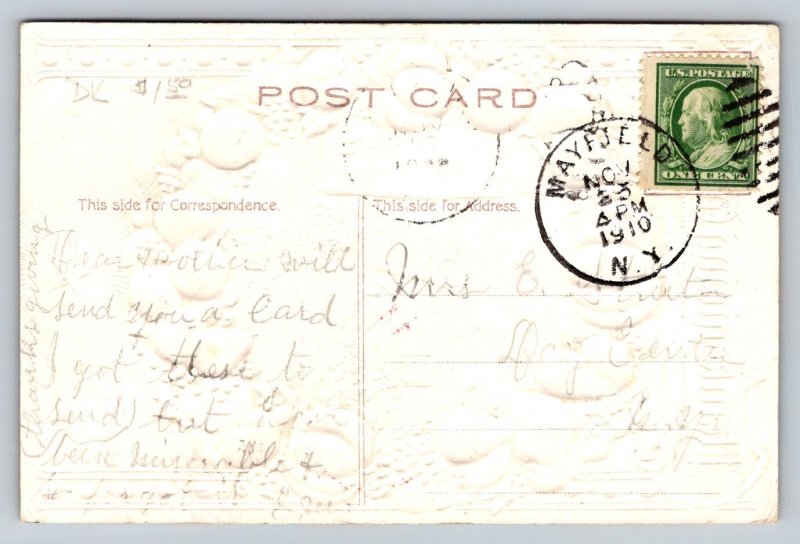 DK $1.50
POST CARD
U.S. POSTAGE
ONE CENT
MAYFIELD
NOV
23
4 PM
1910
N.Y.
This side for Correspondence.
This side for Address.
Dear Mother will
send you a Card
I got these to
send but
been miserable &
(thanksgiving
Mrs E.
Day Center
N.Y.